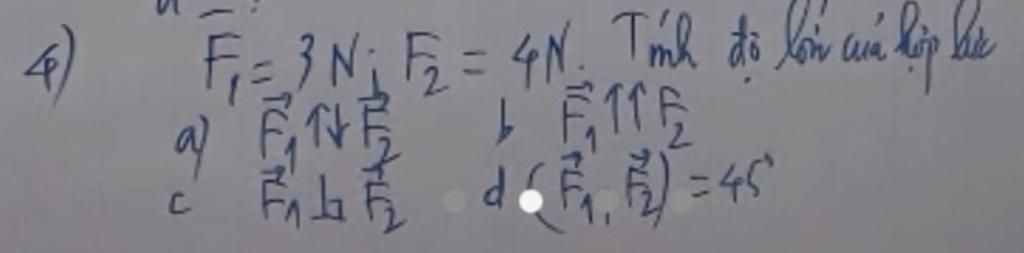 4) F₁ = 3N; F₂ = 4N. Tính độ lớn của hợp lực
a) F⃗₁ ↑↓ F⃗₂ b F⃗₁ ↑↑ F₂
c F⃗₁ ⊥ F⃗₂ d (F⃗₁, F⃗₂) = 45°